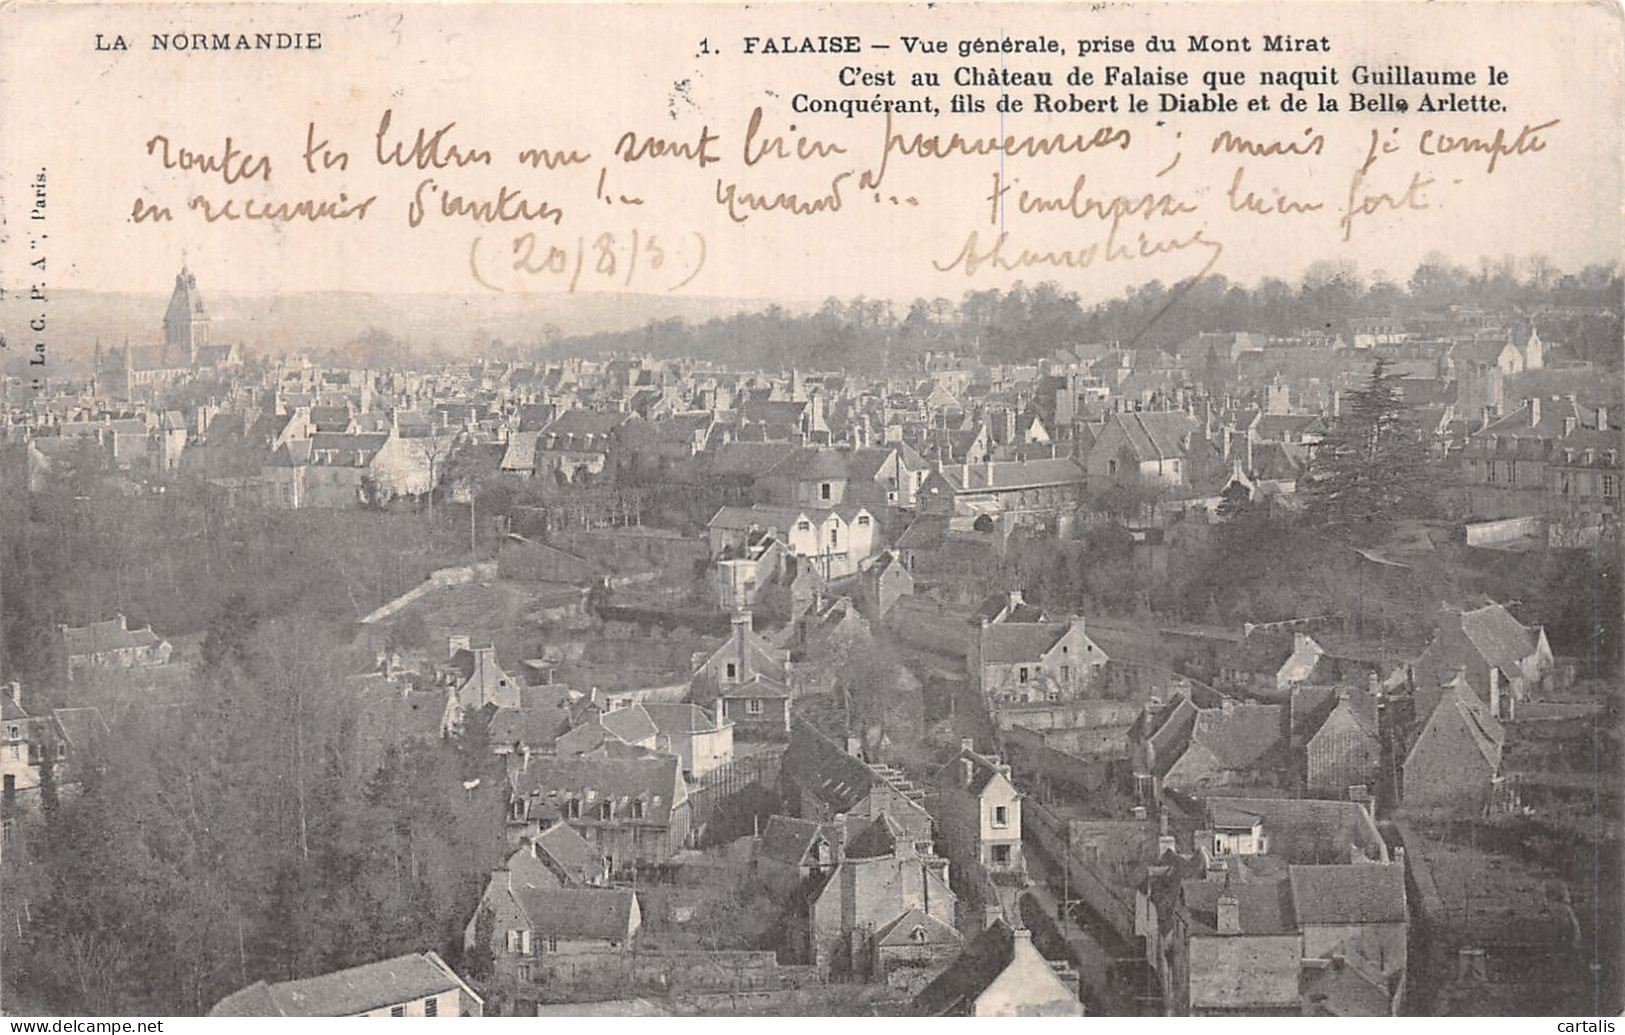 LA NORMANDIE
1. FALAISE — Vue générale, prise du Mont Mirat
C'est au Château de Falaise que naquit Guillaume le
Conquérant, fils de Robert le Diable et de la Belle Arlette.
toutes tes lettres me sont bien parvenues ; mais je compte
en recevoir d'autres !... Quand ?... t'embrasse bien fort.
(20/8/5)
"La C. P. A", Paris.
www.delcampe.net
cartalis